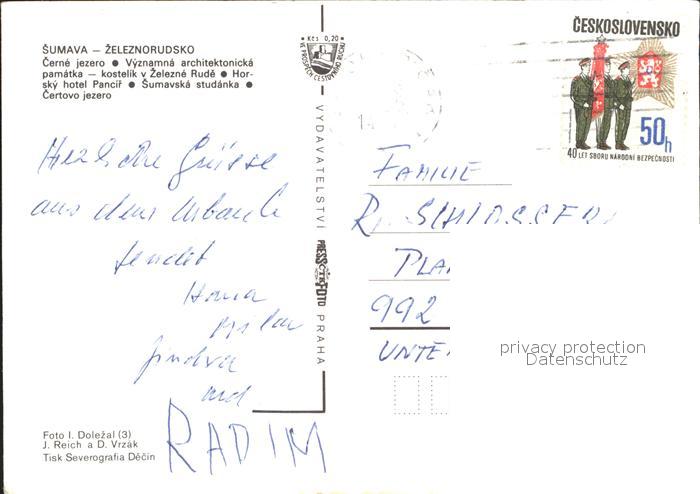 ŠUMAVA — ŽELEZNORUDSKO
Černé jezero ● Významná architektonická
památka — kostelík v Železné Rudě ● Hor-
ský hotel Pancíř ● Šumavská studánka ●
Čertovo jezero
Kčs 0,20
VE PROSPĚCH CESTOVNÍHO RUCHU
ČESKOSLOVENSKO
50h
40 LET SBORU NÁRODNÍ BEZPEČNOSTI
Herzliche Grüsse
aus dem Urlaub
sendet
Hana
Milan
Jindra
und
RADIM
VYDAVATELSTVÍ PRESSFOTO PRAHA
FAMILIE
R.
PLA
992
UNTE
privacy protection
Datenschutz
Foto I. Doležal (3)
J. Reich a D. Vrzák
Tisk Severografia Děčín